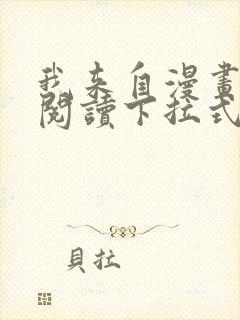 我来自漫畫
閱讀下拉式
貝拉